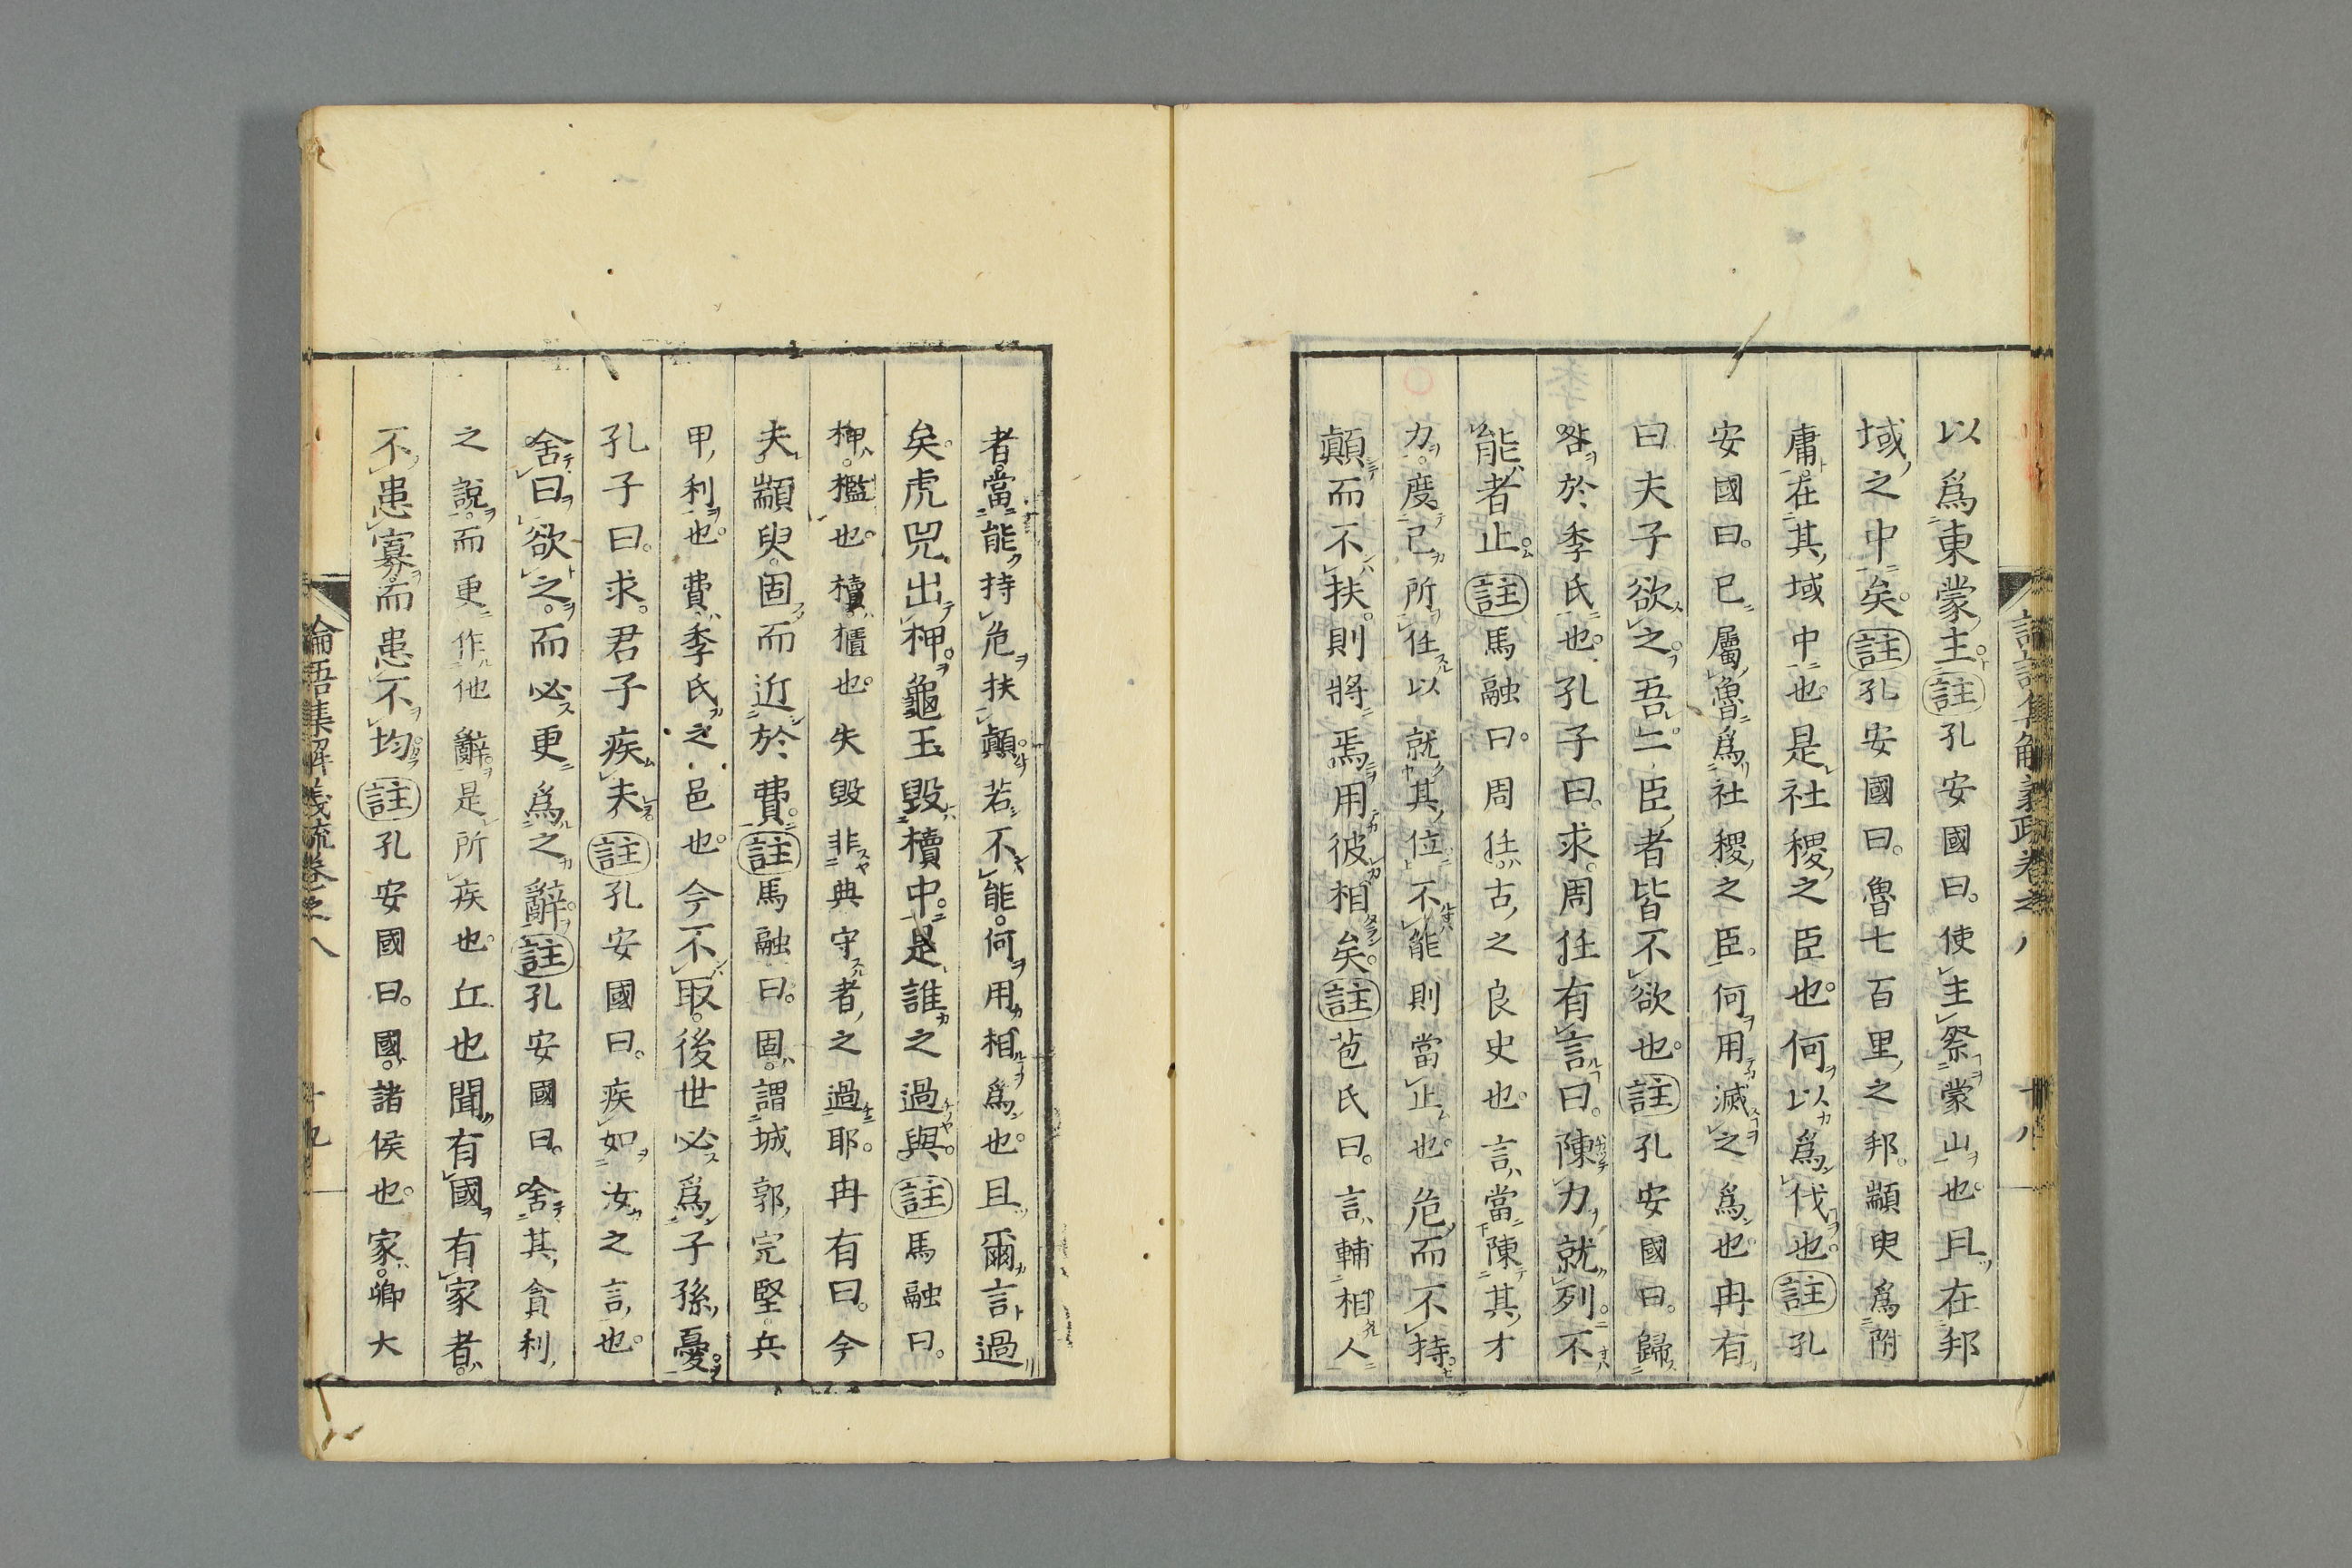 以爲東蒙主註孔安國曰使主祭蒙山也且在邦
域之中矣註孔安國曰魯七百里之邦顓臾爲附
庸在其域中也是社稷之臣也何以爲伐也註孔
安國曰已屬魯爲社稷之臣何用滅之爲也冉有
曰夫子欲之吾二臣者皆不欲也註孔安國曰歸
咎於季氏也孔子曰求周任有言曰陳力就列不
能者止註馬融曰周任古之良史也言當陳其才
力度己所任以就其位不能則當止也危而不持
顛而不扶則將焉用彼相矣註苞氏曰言輔相人
者當能持危扶顛若不能何用相爲也且爾言過
矣虎兕出柙龜玉毀櫝中是誰之過與註馬融曰
柙檻也櫝櫃也失毀非典守者之過耶冉有曰今
夫顓臾固而近於費註馬融曰固謂城郭完堅兵
甲利也費季氏之邑也今不取後世必爲子孫憂
孔子曰求君子疾夫註孔安國曰疾如汝之言也
舍曰欲之而必更爲之辭註孔安國曰舍其貪利
之說而更作他辭是所疾也丘也聞有國有家者
不患寡而患不均註孔安國曰國諸侯也家卿大
論語集解義疏卷之八 十九